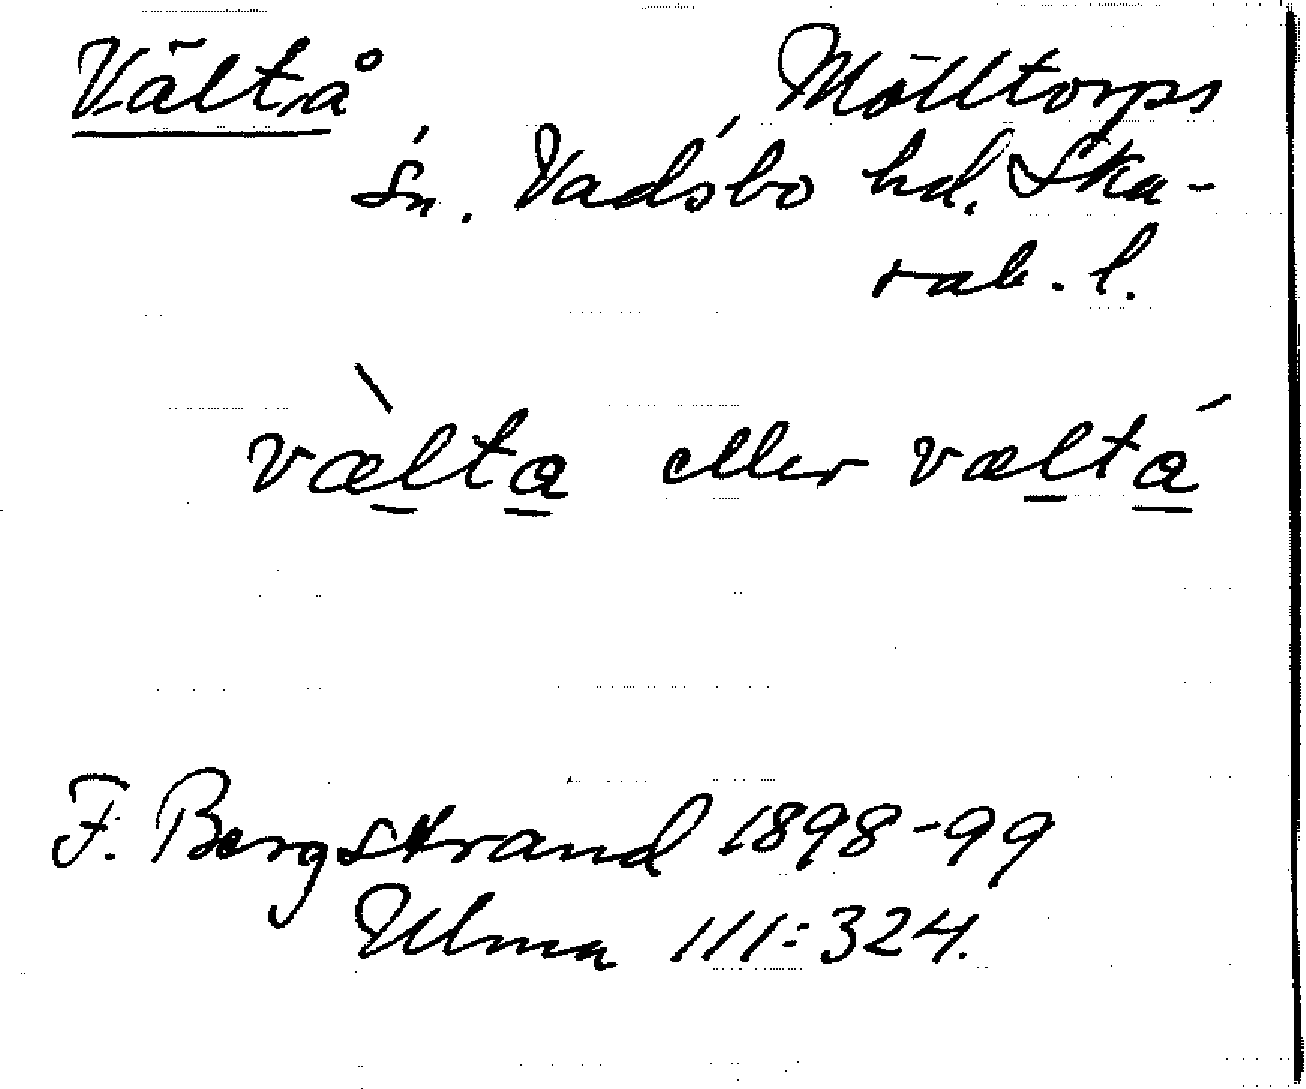 Vältå Mölltorps
sn. Vadsbo hd. Ska-
rab. l.
vælta eller vælta
F. Bergstrand 1898-99
Ulma 111:324.